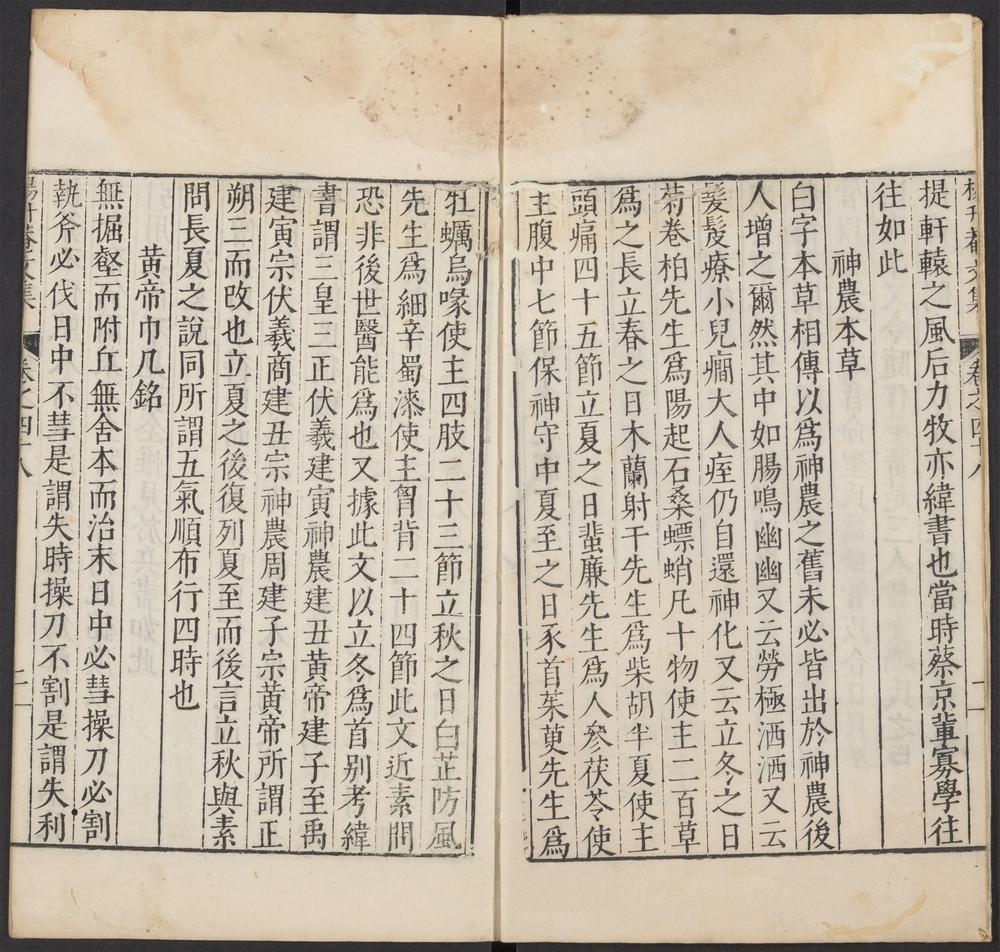 楊升菴文集 卷之四十八 二
提軒轅之風后力牧亦緯書也當時蔡京輩寡學往
往如此
神農本草
白字本草相傳以爲神農之舊未必皆出於神農後
人增之爾然其中如腸鳴幽幽又云勞極洒洒又云
髮髲療小兒癎大人痓仍自還神化又云立冬之日
菊卷柏先生爲陽起石桑螵蛸凡十物使主二百草
爲之長立春之日木蘭射干先生爲柴胡半夏使主
頭痛四十五節立夏之日蜚廉先生爲人參茯苓使
主腹中七節保神守中夏至之日豕首茱萸先生爲
牡蠣烏喙使主四肢二十三節立秋之日白芷防風
先生爲細辛蜀漆使主胷背二十四節此文近素問
恐非後世醫能爲也又據此文以立冬爲首别考緯
書謂三皇三正伏羲建寅神農建丑黃帝建子至禹
建寅宗伏羲商建丑宗神農周建子宗黃帝所謂正
朔三而改也立夏之後復列夏至而後言立秋與素
問長夏之說同所謂五氣順布行四時也
黃帝巾几銘
無掘壑而附丘無舍本而治末日中必彗操刀必割
執斧必伐日中不彗是謂失時操刀不割是謂失利
楊升菴文集 卷之四十八 二